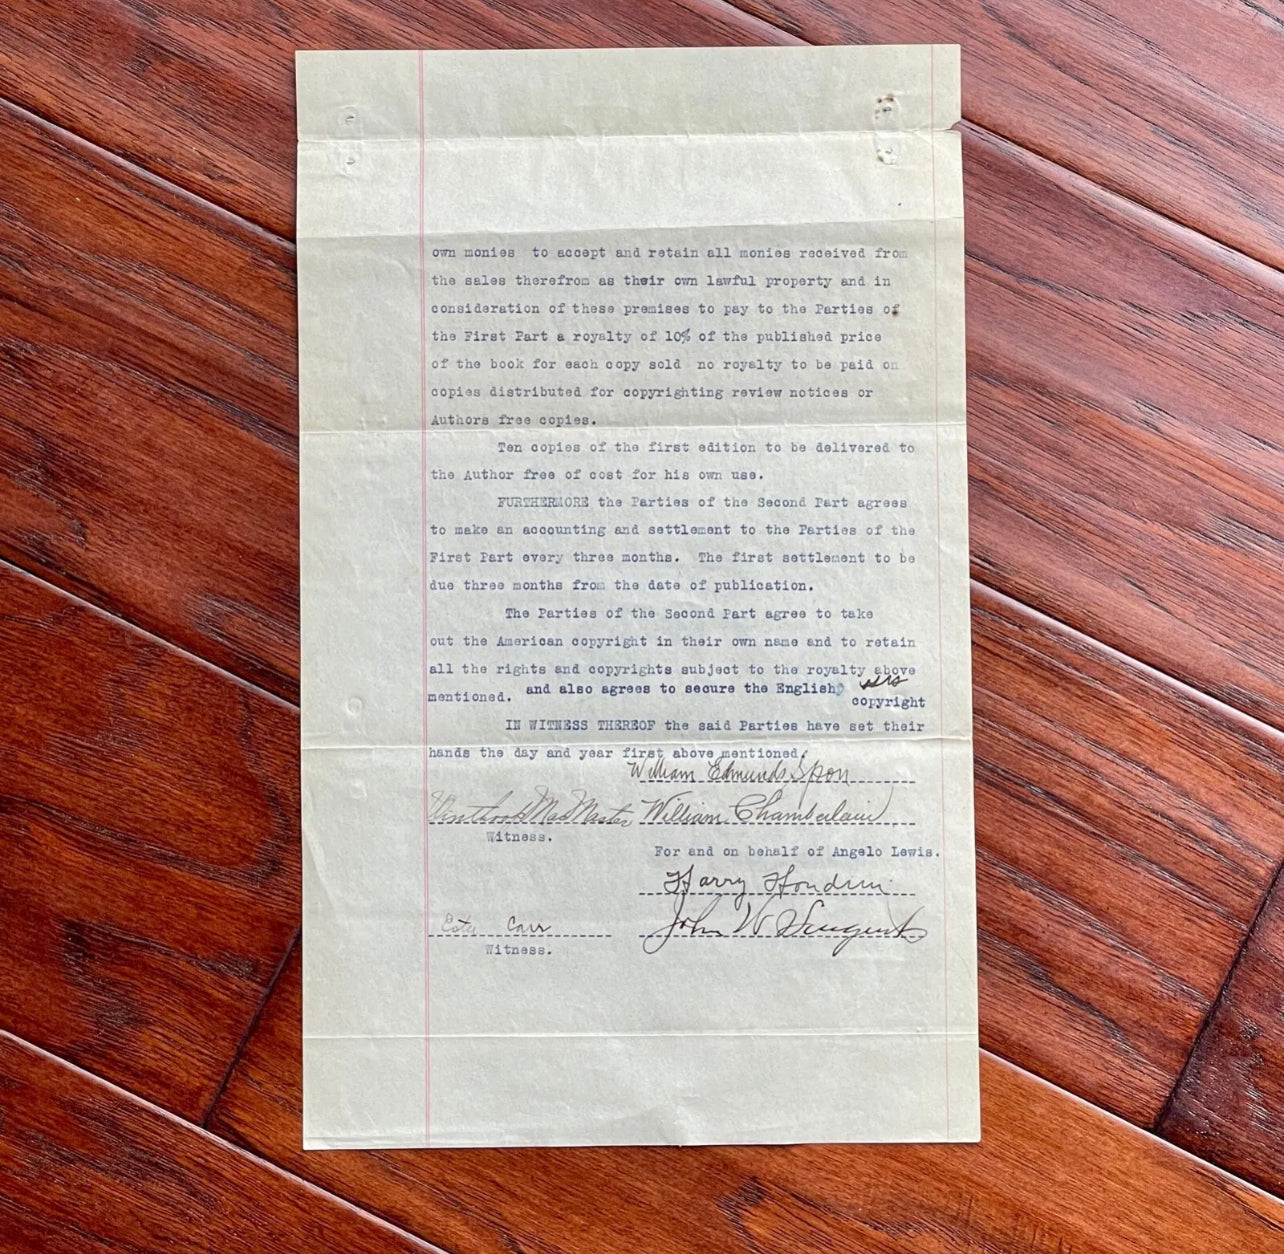 own monies  to accept and retain all monies received from
the sales therefrom as their own lawful property and in
consideration of these premises to pay to the Parties of
the First Part a royalty of 10% of the published price
of the book for each copy sold  no royalty to be paid on
copies distributed for copyrighting review notices or
Authors free copies.
Ten copies of the first edition to be delivered to
the Author free of cost for his own use.
FURTHERMORE the Parties of the Second Part agrees
to make an accounting and settlement to the Parties of the
First Part every three months.  The first settlement to be
due three months from the date of publication.
The Parties of the Second Part agree to take
out the American copyright in their own name and to retain
all the rights and copyrights subject to the royalty above
mentioned. and also agrees to secure the English
copyright
IN WITNESS THEREOF the said Parties have set their
hands the day and year first above mentioned.
William Edmunds Spon
MacMaster William Chamberlain
Witness.
For and on behalf of Angelo Lewis.
Harry Houdini
Carr John W Sargent
Witness.